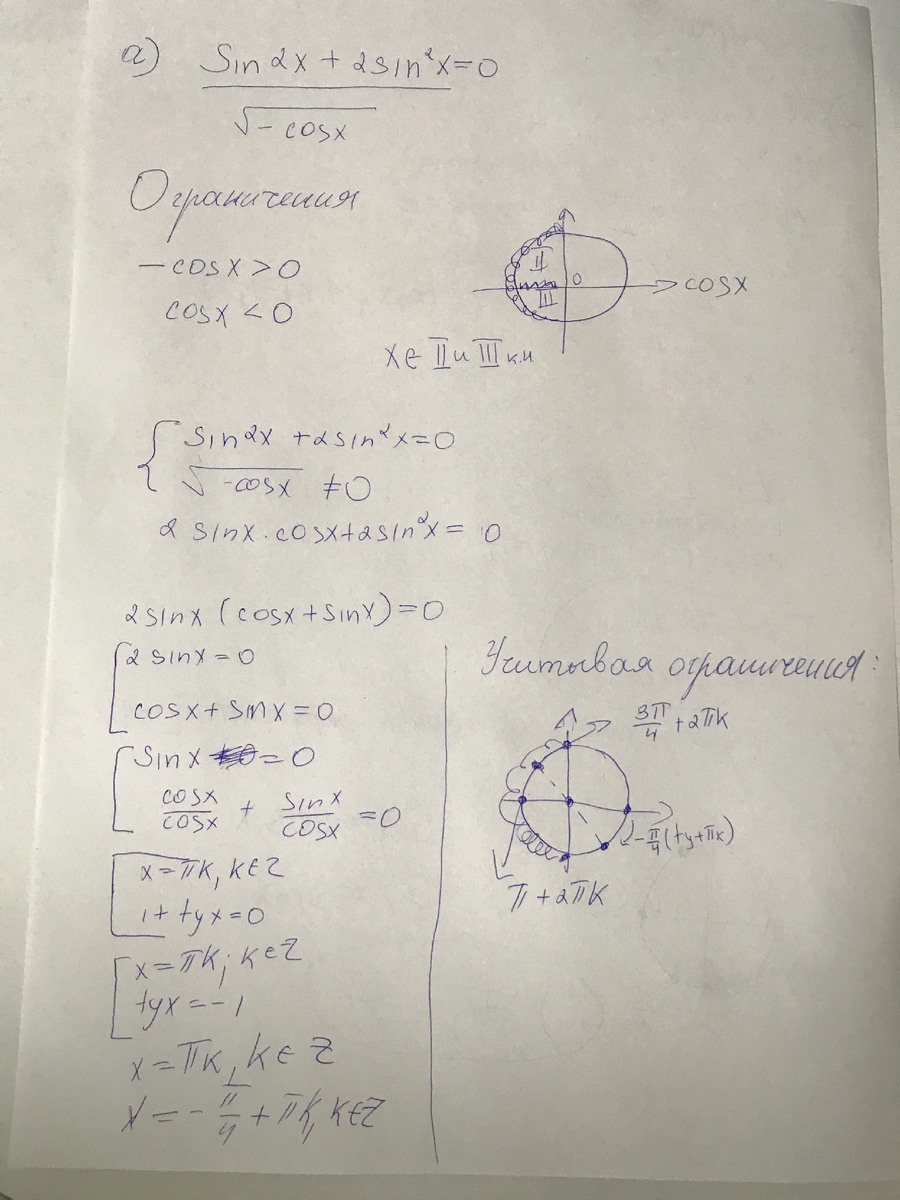 а) sin2x + 2sin²x=0
√-cosx
Ограничения
-cosx>0
cosx<0
II
0
III
cosx
x∈ II и III к.ч
{ sin2x +2sin²x=0
√-cosx ≠0
2 sinx·cosx+2sin²x= 0
2sinx (cosx+sinx)=0
[ 2 sinx=0
cosx+sinx=0
[ sinx =0
cosx/cosx + sinx/cosx =0
[ x=πk, k∈Z
1+tgx=0
[ x=πk; k∈Z
tgx=-1
x=πk, k∈Z
x=-π/4+πk, k∈Z
Учитывая ограничения:
3π/4 +2πk
-π/4(tg+πk)
π+2πk